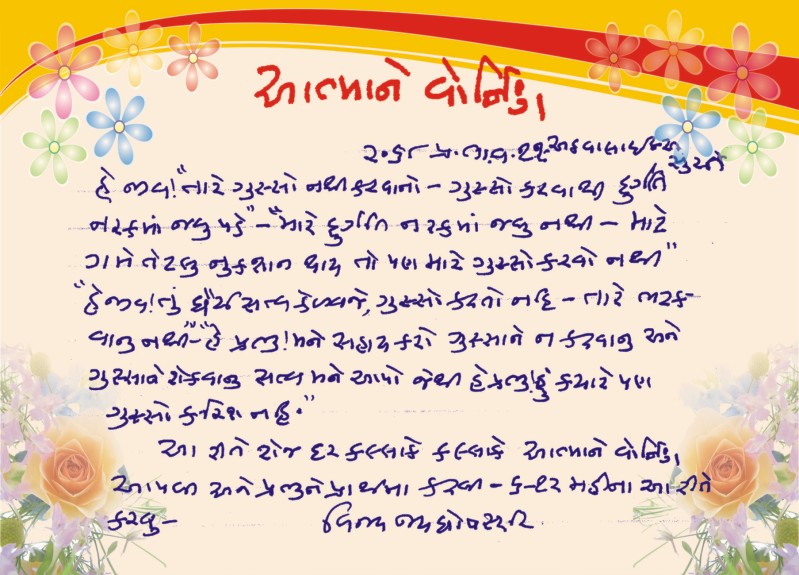 આત્માને વોર્નિંગ
હે જીવ! "તારે ગુસ્સો નથી કરવાનો - ગુસ્સો કરવાથી દુર્ગતિ
નરકમાં જવુ પડે" - "મારે દુર્ગતિ નરકમાં જવુ નથી - માટે
ગમે તેટલુ નુકશાન થાય તો પણ મારે ગુસ્સો કરવો નથી"
"હે જીવ! તું ધૈર્ય સત્વ કેળવજે, ગુસ્સો કરતો નહિ - તારે ભટક-
વાનુ નથી" - "હે પ્રભુ! મને સહાય કરો ગુસ્સાને ન કરવાનુ અને
ગુસ્સાને રોકવાનુ સત્વ મને આપો જેથી હે પ્રભુ! હું ક્યારે પણ
ગુસ્સો કરિશ નહિ."
આ રીતે રોજ દર કલ્લાકે કલ્લાકે આત્માને વોર્નિંગ
આપવી અને પ્રભુને પ્રાર્થના કરવી - ૬-૧૨ મહીના આ રીતે
કરવુ -